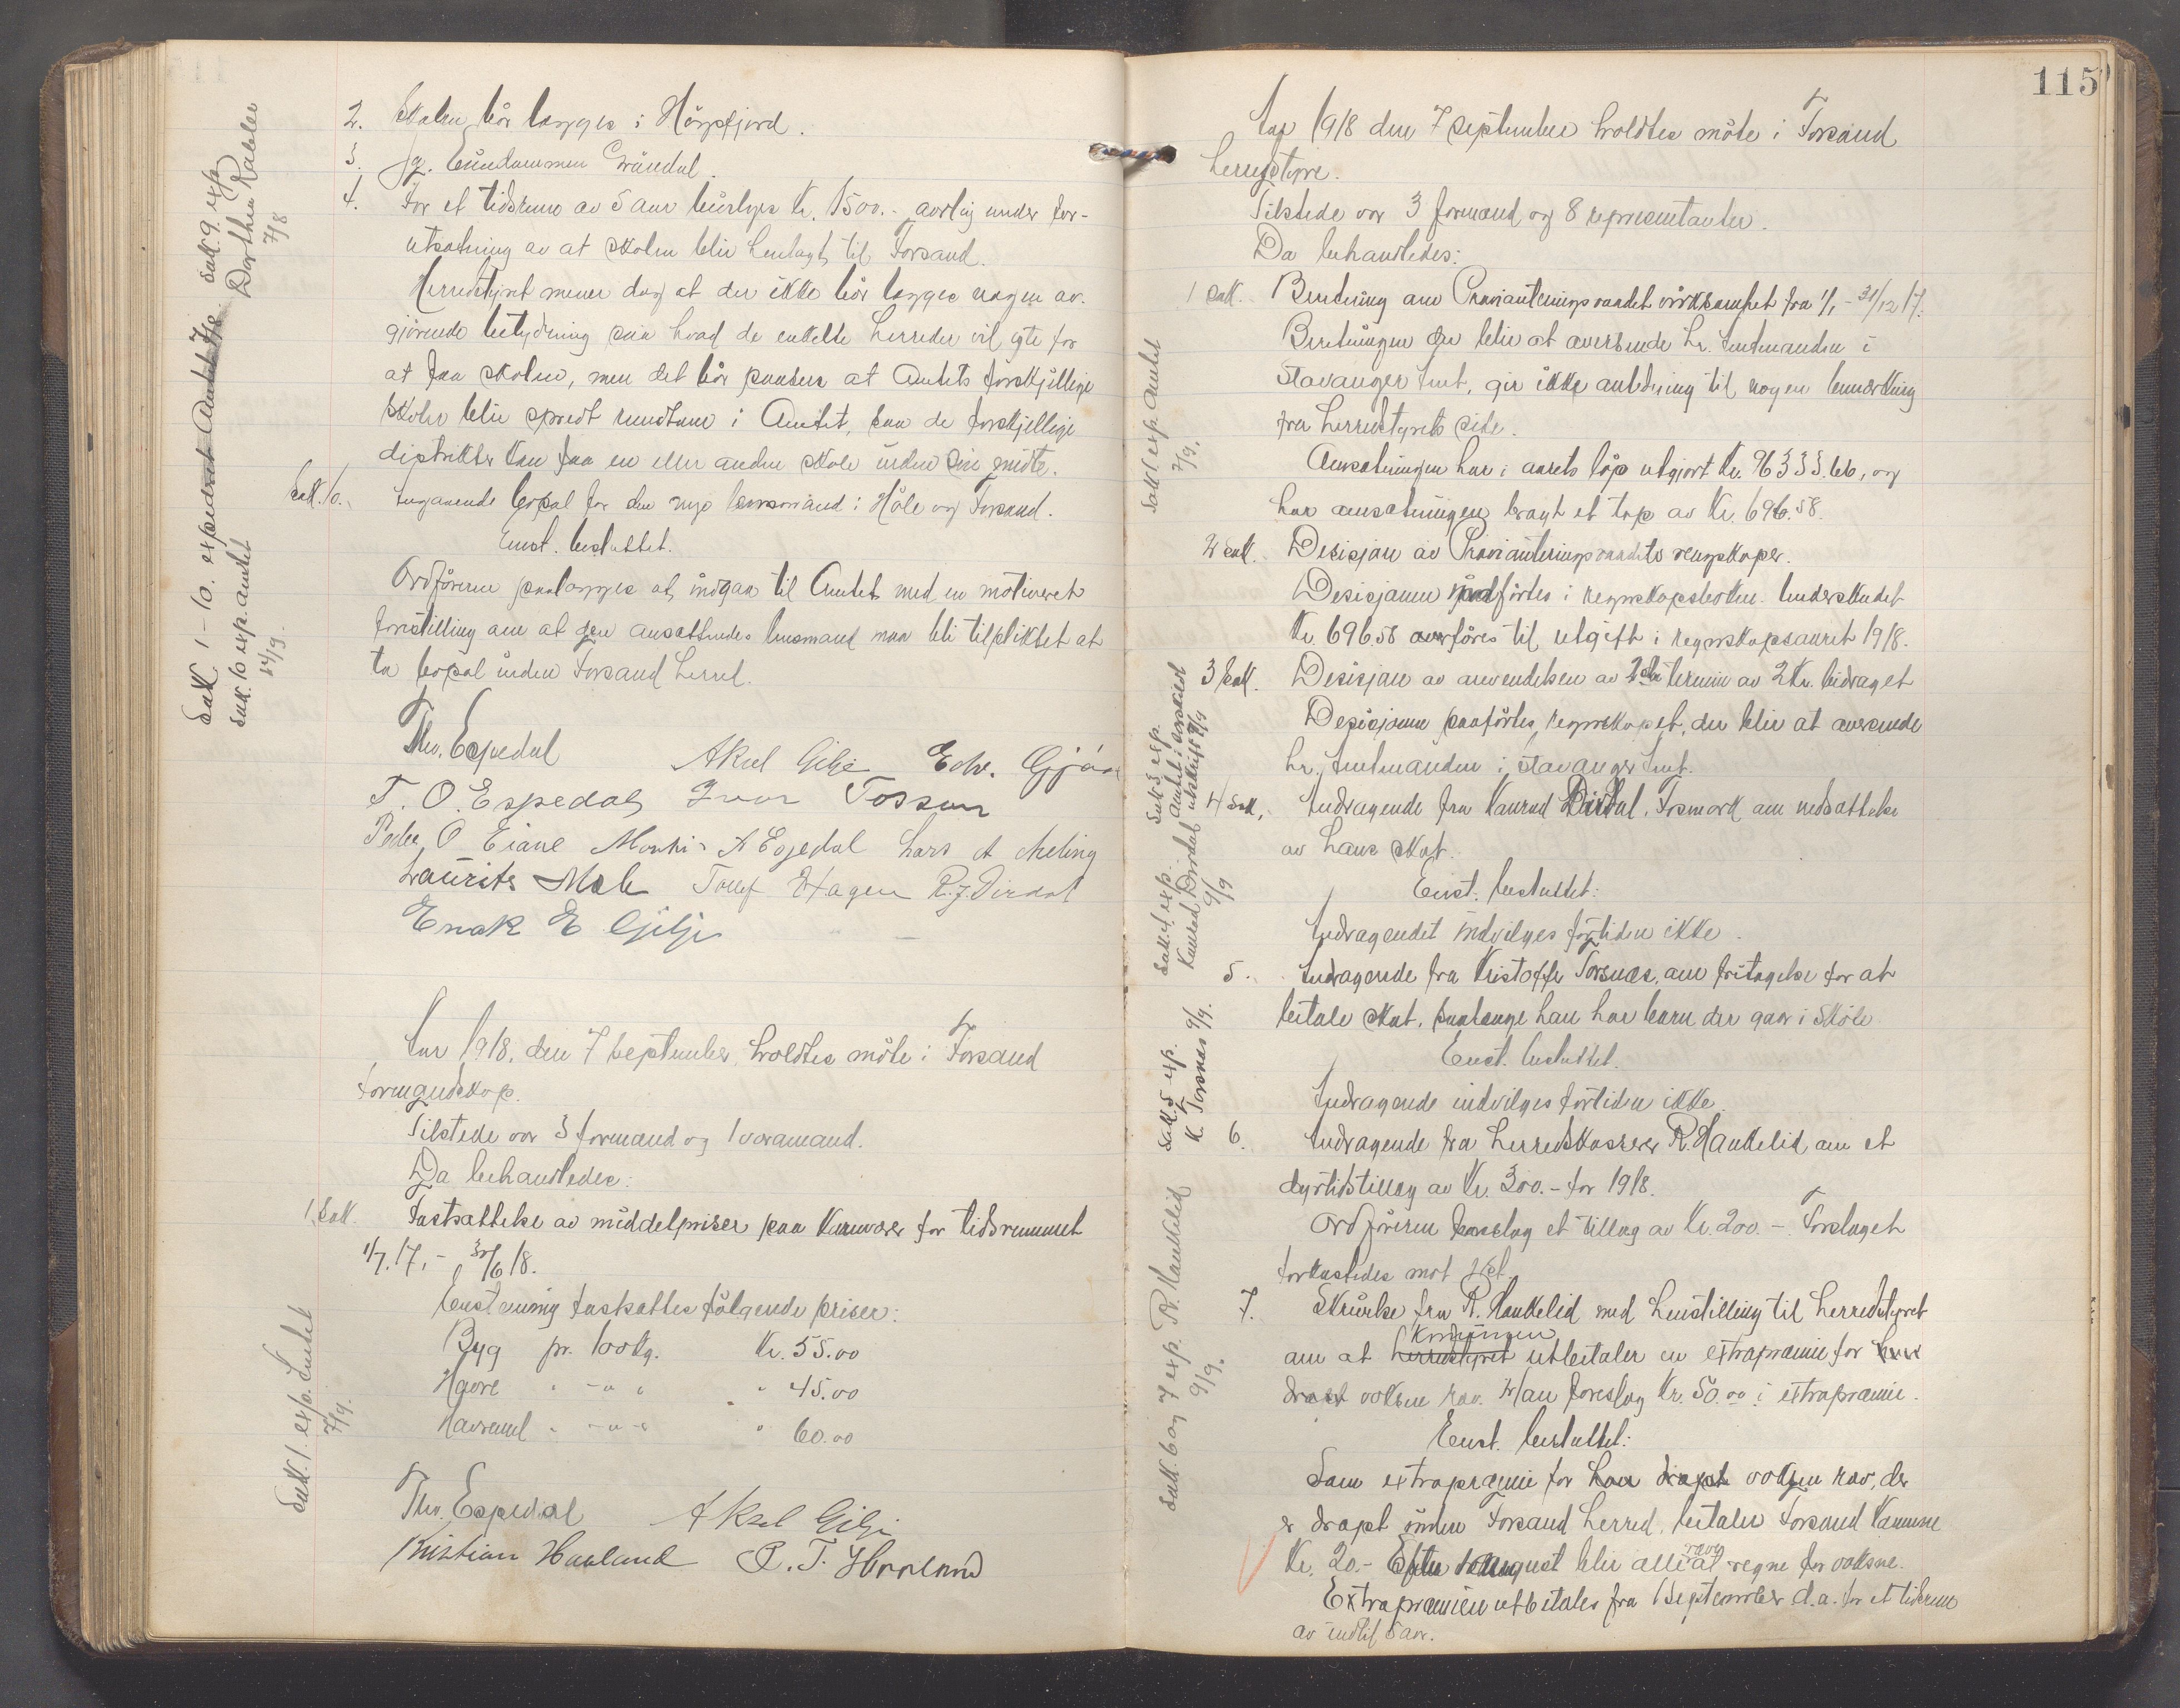 2. Skolen bör lægges i Högsfjord.
3. Jg. Eiendommen Wærsdal.
4. For et tidsrum av 5 aar bevilges Kr. 1500.- aarlig under for-
utsætning av at skolen blir henlagt til Forsand.
Herredstyret mener dog at der ikke bör lægges nogen av-
gjörende betydning paa hvad de enkelte herreder vil yte for
at faa skolen, men det bör paasees at Amtets forskjellige
skoler blir spredt rundtom i Amtet, saa de forskjellige
distrikter kan faa en eller anden skole inden sin midte.
Sak. 10. Angaaende bopæl for den nye lensmand i Höle og Forsand.
Enst. besluttet.
Ordföreren paalægges at indgaa til Amtet med en motiveret
forestilling om at den ansættendes lensmand maa bli tilpliktet at
ta bopæl inden Forsand herred.
Thv. Espedal Aksel Gilje Edv. Gjöse
T. O. Espedal Ivar Fossan
Peder O Eiane Montin A Espedal Lars A Meling
Laurits Mæle Tollef Hagen R. J. Dirdal
Enok E Gilje
Aar 1918, den 7 september holdtes möte i Forsand
formandskap.
Tilstede var 3 formænd og 1 varamand.
Da behandledes:
1. Sak. Fastsættelse av middelpriser paa kornvarer for tidsrummet
1/7. 17, - 30/6 18.
Enstemmig fastsattes fölgende priser:
Byg pr. 100 Kg. Kr. 55.00
Havre " - " - " 45.00
Havremel " - " - " 60.00
Thv. Espedal Aksel Gilje
Kristian Haaland P. T. Haaland
Sak 1 - 10. expederet Amtet 7/8. Sak. 9. exp.
Dorthea Rabbe
7/8
Sak. 10 exp. amtet
14/9.
Sak. 1. exp. Amtet
7/9.
115
Aar 1918 den 7 september holdtes möte i Forsand
herredstyre.
Tilstede var 3 formænd og 8 representanter.
Da behandledes:
1 Sak. Beretning om Provianteringsraadet virksomhet fra 1/1 - 31/12 17.
Beretningen der blir at oversende hr. Amtmanden i
Stavanger Amt, gir ikke anledning til nogen bemerkning
fra herredstyrets side.
Omsætningen har i aarets löp utgjort Kr. 96333.66, og
har omsætningen bragt et tap av Kr. 696.58.
2 Sak. Desisjon av Provianteringsraadets regnskaper.
Desisjonen paaförtes i regnskapsboken. Underskudet
Kr. 696.58 överföres til utgift i regnskapsaaret 1918.
3 Sak. Desisjon av anvendelsen av 2den termin av 2 Kr. bidraget
Desisjonen paaförtes regnskapet, der blir at oversende
hr. Amtmanden i Stavanger Amt.
4 Sak. Andragende fra Konrad Dirdal, Fosmark om nedsættelse
av hans skat.
Enst. besluttet:
Andragendet indvilges förtiden ikke.
5. Andragende fra Kristoffer Forsnæs, om fritagelse for at
betale skat, saalænge han har barn der gaar i skole
Enst. besluttet.
Andragende indvilges förtiden ikke.
6. Andragende fra Herredskasserer R. Haukelid om et
dyrtidstillæg av Kr. 300.- for 1918.
Ordföreren foreslog et tillæg av Kr. 200.-. Forslaget
forkastedes mot 1 st.
7. Skrivelse fra R. Haukelid med henstilling til herredstyret
kommunen
om at herredstyret utbetaler en extrapræmie for hver
dræpt voksen rev. Man foreslog Kr. 50.00 i extrapræmie.
Enst. besluttet:
Som extrapræmie for hver dræpt voksen rev, der
er dræpt inden Forsand herred, betaler Forsand kommune
ræve
Kr. 20.- Efter 1 August blir alle at regne for voksne.
Extrapræmien utbetales fra 1 september d.a. for et tidsrum
av indtil 5 aar.
Sak 1 exp. Amtet
7/9.
Sak 3 exp.
Amtet i særskilt
utskrift 9/9
Sak. 4. exp.
Konrad Dirdal
9/9
Sak. 5 exp.
K. Forsnæs 9/9.
Sak. 6 og 7 exp. R. Haukelid
9/9.